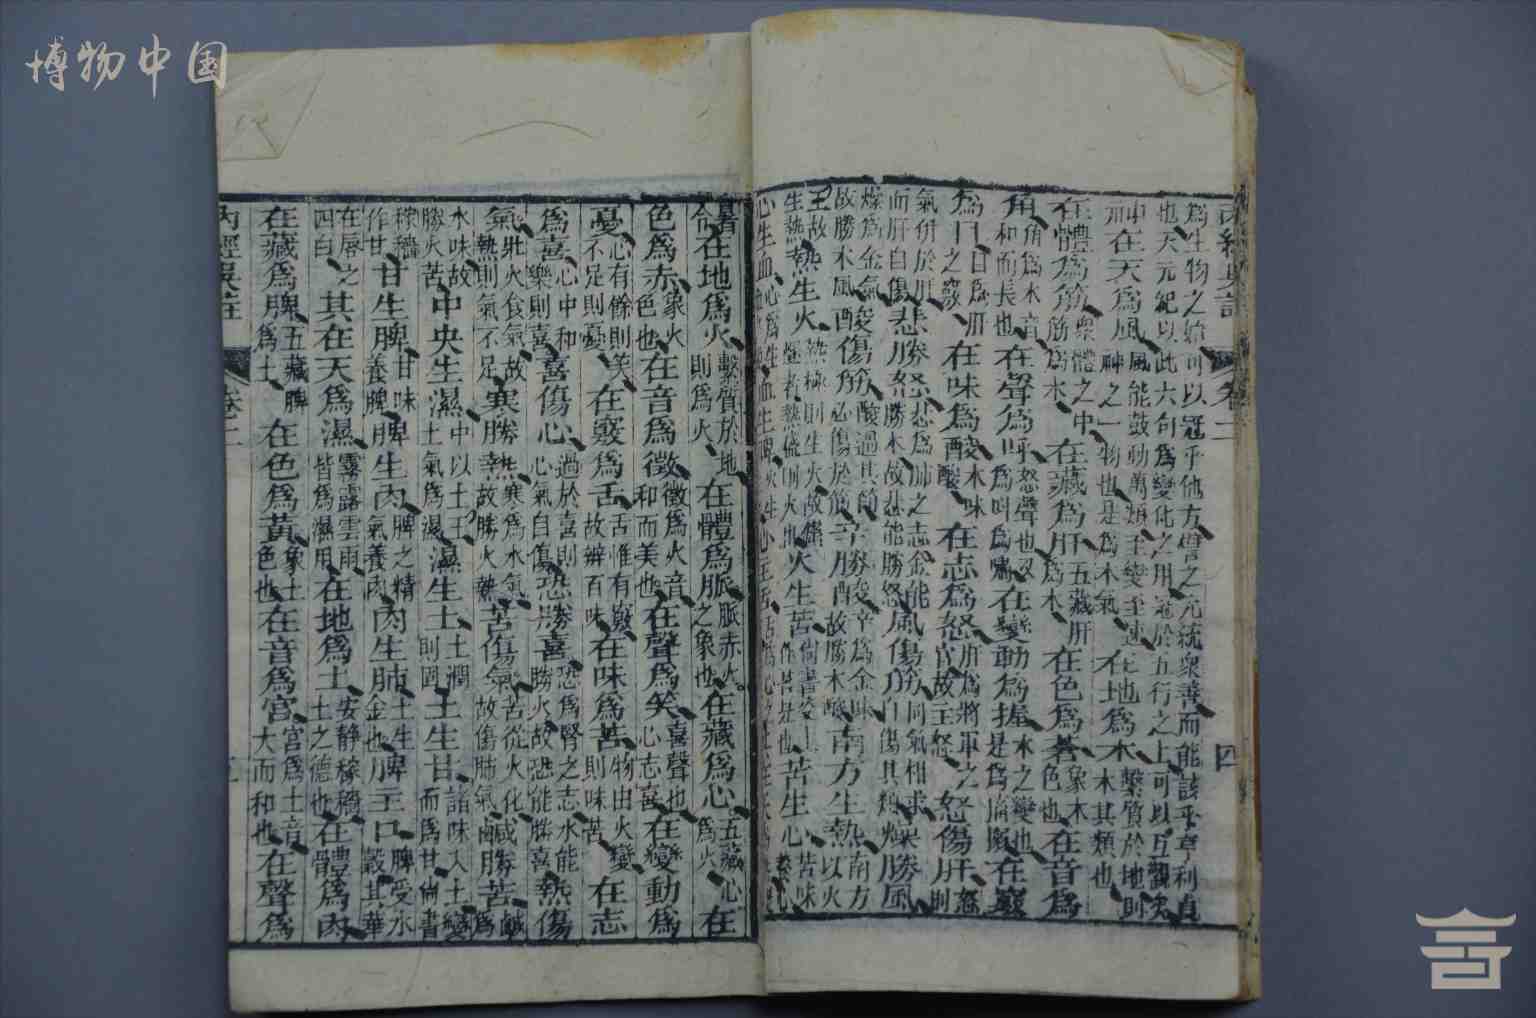 博物中国
內經吳註 卷二 四
為生物之始可以冠乎他方僭之元統眾善而能該乎亨利貞也天元紀以此六句為變化之用冠於五行之上可以互觀矣
在天為風風能鼓動萬類至變至神之一物也是為木氣在地為木繫質於地則木其類也
在體為筋眾體之中筋為木在藏為肝五藏肝為木在色為蒼象木色也在音為
角角為木音和而長也在聲為呼怒聲也又為叫為嘯在變動為握木之變也是為搐搦在竅
為目目為肝之竅在味為酸木味酸在志為怒肝為將軍之官故主怒怒傷肝怒則
氣併於肝而肝自傷悲勝怒悲為肺之志金能勝木故悲能勝怒風傷筋同氣相求自傷其類燥勝風
燥為金氣故勝木風酸傷筋酸過其節必傷於筋辛勝酸辛為金味故勝木酸南方生熱南方以火
王故生熱熱生火熱極則生火故鑽燧者熱盛則火出火生苦尚書炎上作苦是也苦生心苦味養心
心生血
暑令在地為火繫質於地則為火在體為脈脈赤火之象也在藏為心五藏心為火在
色為赤象火色也在音為徵徵為火音和而美也在聲為笑喜聲也心志喜在變動為
憂心有餘則笑不足則憂在竅為舌舌惟有竅故辨百味在味為苦物由火變則味苦在志
為喜心中和樂則喜喜傷心過於喜則心氣自傷恐勝喜恐為腎之志水能勝火故恐能勝喜熱傷
氣壯火食氣故熱則氣不足寒勝熱寒為水氣故勝火熱苦傷氣苦從火化故傷肺氣鹹勝苦鹹為
水味故勝火苦中央生濕中以土王土氣為濕濕生土土潤則固土生甘諸味入土變而為甘尚書
稼穡作甘甘生脾甘味養脾脾生肉脾之精氣養肉肉生肺土生金也脾主口脾受水穀其華
在唇之四白其在天為濕霧露雲雨皆為濕用在地為土安靜稼穡土之德也在體為肉
在藏為脾五藏脾為土在色為黃象土色也在音為宮宮為土音大而和也在聲為
內經吳註 卷二